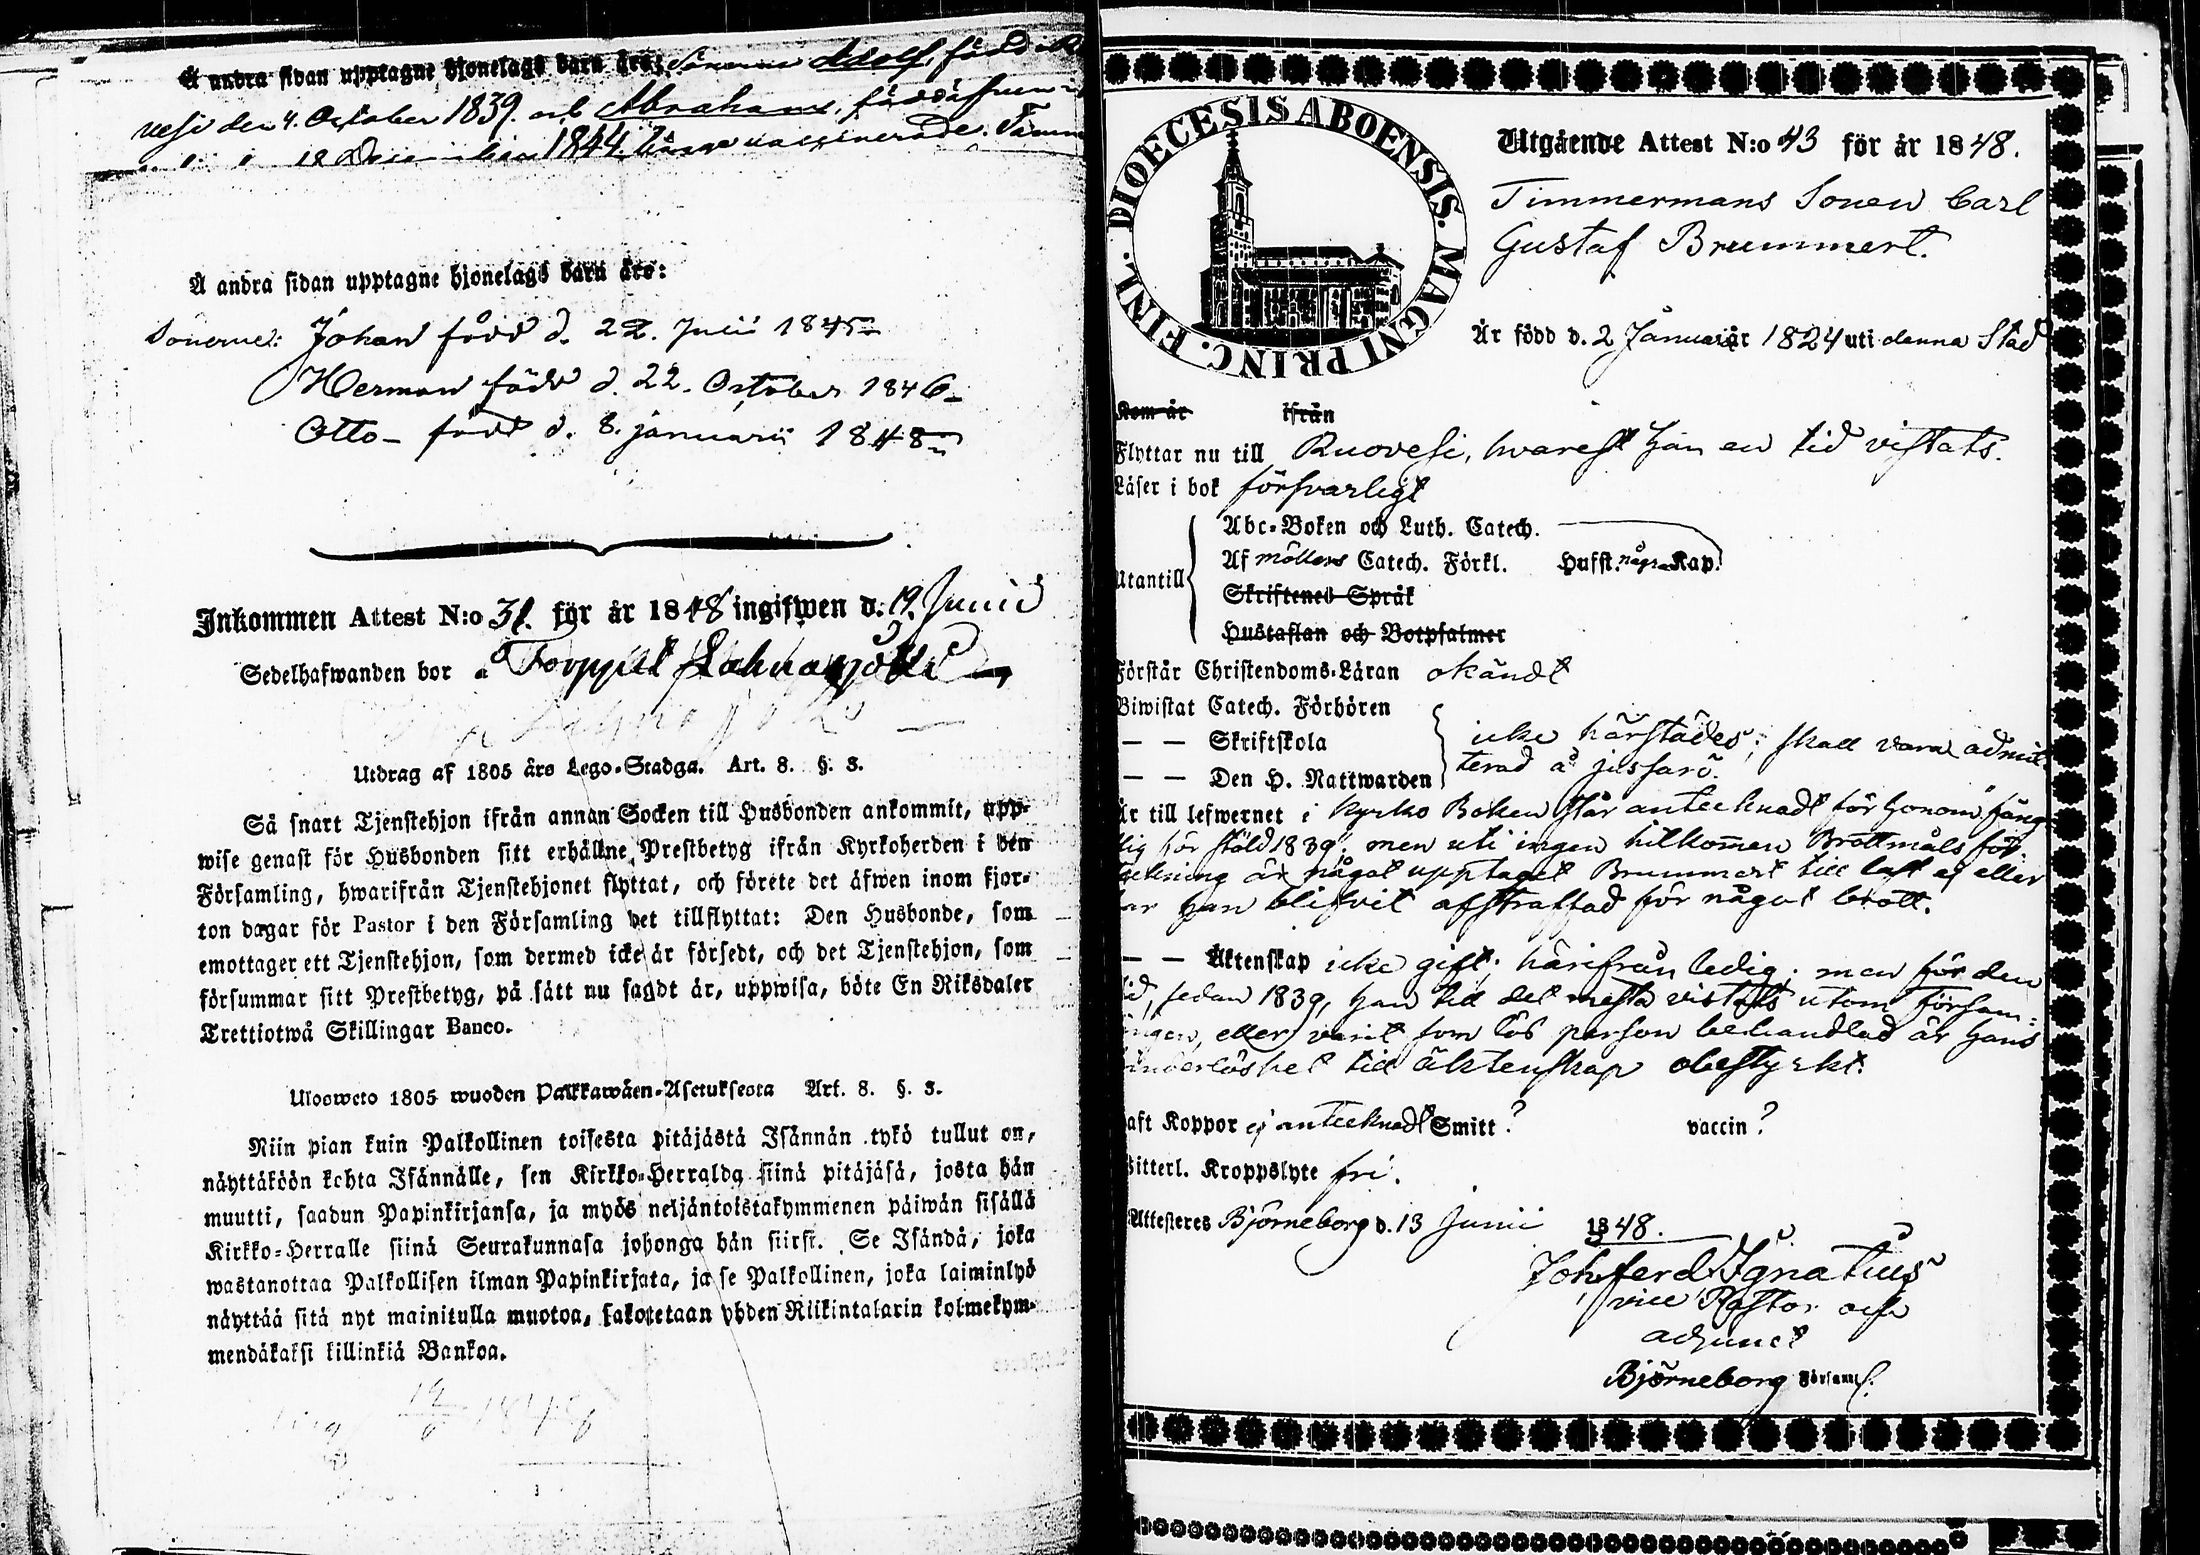 Å andra sidan upptagne hjonelags barn äro: Sönerne Adolf, född i
vesi den 4. October 1839. och Abraham, född i
18 December 1844. vaccinerade.
Å andra sidan upptagne hjonelags barn äro:
Sönerne: Johan född d. 22. Junii 1845
Herman född d. 22. October 1846
Otto född d. 8. januarii 1848
Inkommen Attest N:o 31. för år 1848 ingifwen d. 19. Junii
Sedelhafwanden bor å
Utdrag af 1805 års Lego-Stadga. Art. 8. §. 3.
Så snart Tjenstehjon ifrån annan Socken till Husbonden ankommit, upp-
wise genast för Husbonden sitt erhållne Prestbetyg ifrån Kyrkoherden i den
Församling, hwarifrån Tjenstehjonet flyttat, och förete det äfwen inom fjor-
ton dagar för Pastor i den Församling det tillflyttat: Den Husbonde, som
emottager ett Tjenstehjon, som dermed icke är försedt, och det Tjenstehjon, som
försummar sitt Prestbetyg, på sätt nu sagdt är, uppwisa, böte En Riksdaler
Trettiotwå Skillingar Banco.
Ulosweto 1805 wuoden Palkkawäen-Asetuksesta Art. 8. §. 3.
Niin pian kuin Palkollinen toisesta pitäjästä Isännän tykö tullut on,
näyttäköön kohta Isännälle, sen Kirkko-Herralda siinä pitäjäsä, josta hän
muutti, saadun Papinkirjansa, ja myös neljäntoistakymmenen päiwän sisällä
Kirkko-Herralle siinä Seurakunnasa johonga hän siirsi. Se Isändä, joka
wastanottaa Palkollisen ilman Papinkirjata, ja se Palkollinen, joka laiminlyö
näyttää sitä nyt mainitulla muotoa, sakotetaan yhden Riikintalarin kolmekym-
mendäkaksi killinkiä Bankoa.
DIOECESIS ABOENSIS. MAGNI PRINC. FINL.
Utgående Attest N:o 43 för år 1848.
Timmermans Sonen Carl
Gustaf Brummert.
Är född d. 2 Januarii år 1824 uti denna Stad
Kom år ifrån
Flyttar nu till Ruovesi, hvarest han en tid vistats.
Läser i bok försvarligt
Abc-Boken och Luth. Catech.
Utantill Af möllers Catech. Förkl. Hufst. några Kap.
Skriftenes Språk
Hustaflan och Botpsalmer
Förstår Christendoms-Läran okändt
Biwistat Catech. Förhören
— — Skriftskola icke härstädes; skall vara admit
— — Den H. Nattwarden terad å jusfarö.
Är till lefwernet i Kyrko Boken står antecknadt för honom "fäng
lig för stöld 1839", men uti ingen hitkommen Brottmåls för
teckning är något upptaget Brummert till last ej eller
har han blifvit afstraffad för något brott.
— — Äktenskap icke gift; härifrån ledig; men för den
tid, sedan 1839, han till det mesta vistats utom försam-
lingen, eller varit som lös person behandlad är hans
hinderlöshet till äktenskap obestyrkt.
Haft Koppor ej antecknadt Smitt? vaccin?
Witterl. Kroppslyte fri.
Attesteras Björneborg d. 13 Junii 1848.
Joh. Ferd. Ignatius
vice Pastor och
adjunct
Björneborg Församl.